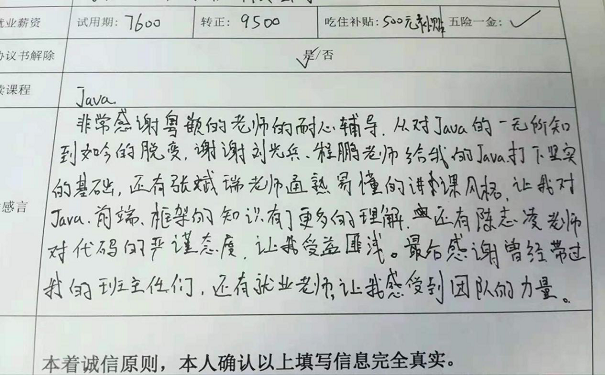 就业薪资 试用期：7600 转正：9500 吃住补贴：500元补贴 五险一金：✓
协议书解除 是/否
课程 Java
感言
非常感谢粤嵌的老师的耐心辅导，从对Java的一无所知
到如今的脱变，谢谢刘光兵、程鹏老师给我的Java打下坚实
的基础，还有张斌瑞老师通熟易懂的讲课风格，让我对
Java、前端、框架的知识有了更多的理解，还有陈志凌老师
对代码的严谨态度，让我受益匪浅。最后感谢曾经带过
我的班主任们，还有就业老师，让我感受到团队的力量。
本着诚信原则，本人确认以上填写信息完全真实。